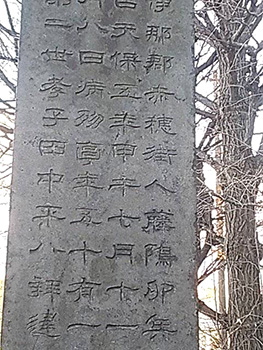 伊那郡赤穂街人藤隝卯兵
日天保五年甲午七月十一
八日病歿享年五十有一
第二世孝子田中平八拜建